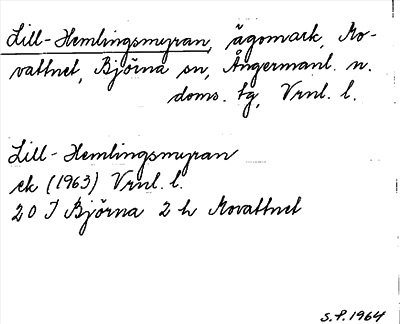 Lill-Hemlingsmyran, ägomark, Mo-
vattnet, Björna sn, Ångermanl. n.
doms. tg, Vrnl. l.
Lill-Hemlingsmyran
ek (1963) Vrnl. l.
20 I Björna 2 h Movattnet
S.P. 1964